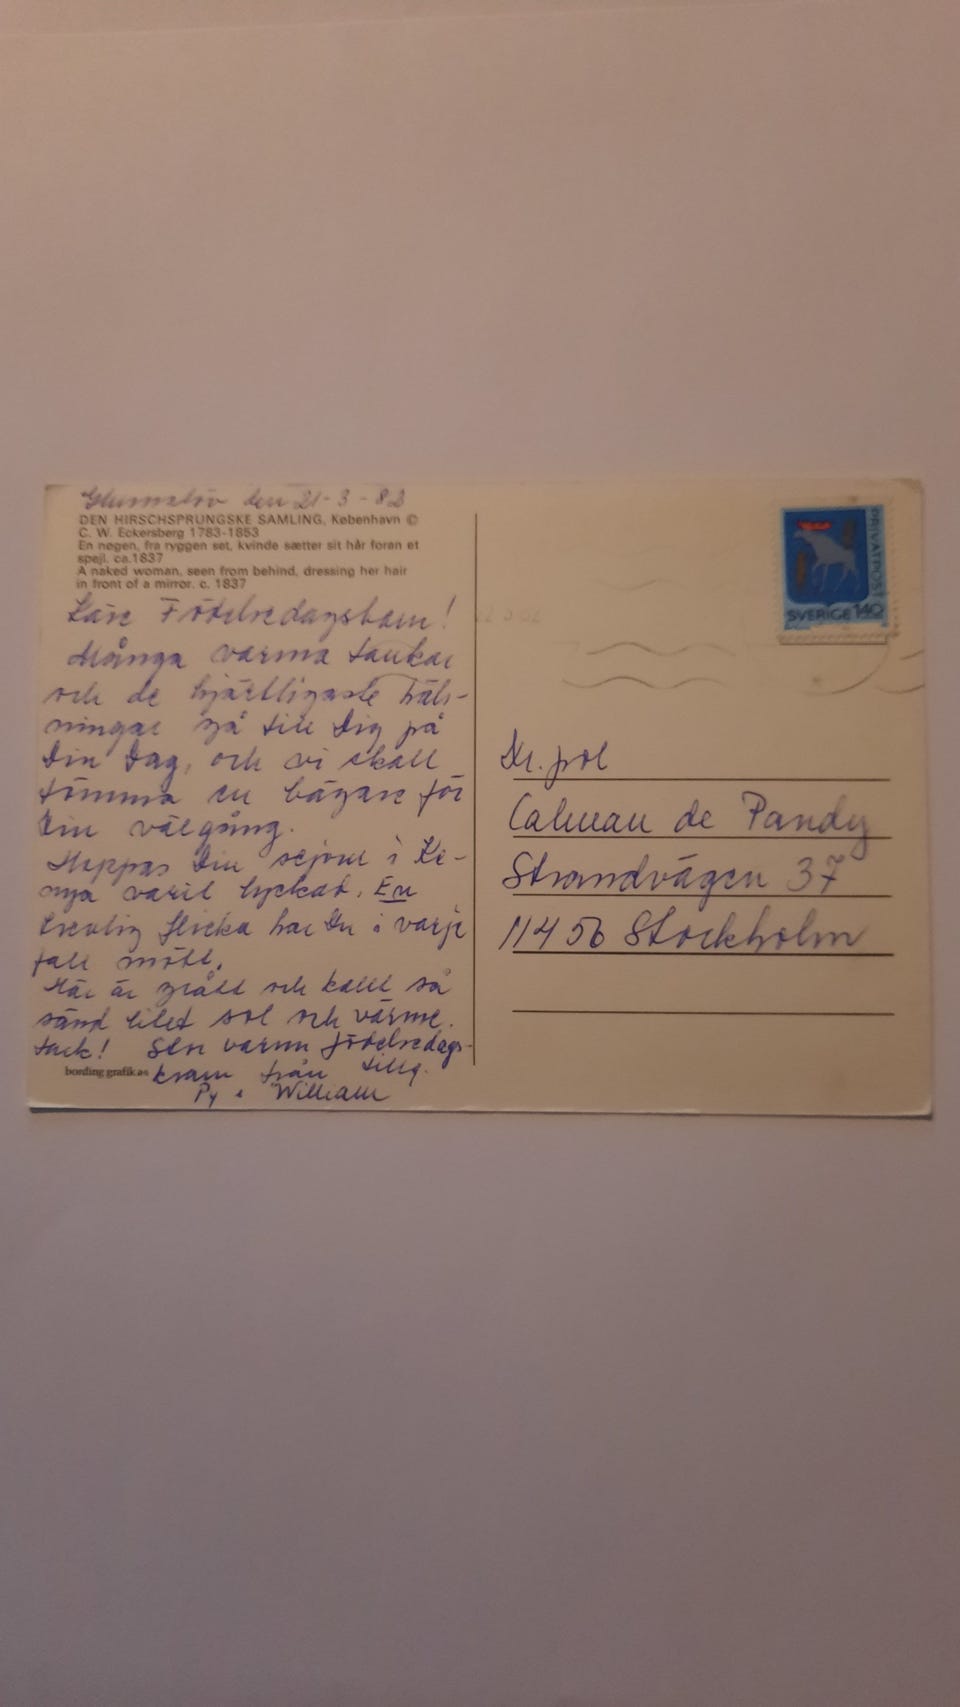 Glumslöv den 21-3-82
DEN HIRSCHSPRUNGSKE SAMLING, København ©
C. W. Eckersberg 1783-1853
En nøgen, fra ryggen set, kvinde sætter sit hår foran et
spejl. ca.1837
A naked woman, seen from behind, dressing her hair
in front of a mirror. c. 1837
Käre Födelsedagsbarn!
Många varma tankar
och de hjärtligaste häls-
ningar gå till Dig på
Din Dag, och vi skall
tömma en bägare för
Din välgång.
Hoppas Din sejour i Ke-
nya varit lyckad. En
trevlig flicka har Du i varje
fall mött.
Här är grått och kallt så
sänd litet sol och värme.
Tack! Stor varm födelsedags-
kram från tillg.
Py & William
bording grafik as
PRIVATPOST
SVERIGE 140
Dr. pol
Calman de Pandy
Strandvägen 37
114 56 Stockholm